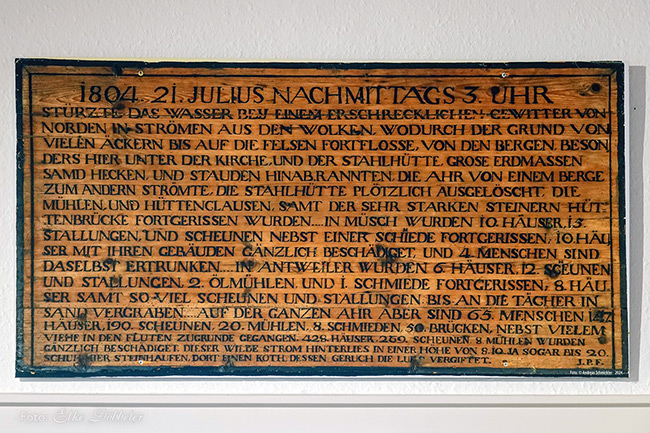 1804. 21. JULIUS NACHMITTAGS 3. UHR
STÜRZTE DAS WASSER BEIJ EINEM ERSCHRECKLICHEN GEWITTER VON
NORDEN, IN STRÖMEN AUS DEN WOLKEN, WODURCH DER GRUND VON
VIELEN ÄCKERN BIS AUF DIE FELSEN FORTFLOSSE, VON DEN BERGEN, BESON
DERS HIER UNTER DER KIRCHE, UND DER STAHLHÜTTE, GROSE ERDMASSEN
SAMD HECKEN UND STAUDEN HINAB,RANNTEN, DIE AHR VON EINEM BERGE
ZUM ANDERN STRÖMTE, DIE STAHLHÜTTE PLÖTZLICH AUSGELÖSCHT, DIE
MÜHLEN, UND HÜTTENCLAUSEN, SAMT DER SEHR STARKEN STEINERN HÜT-
TENBRÜCKE FORTGERISSEN WURDEN.... IN MÜSCH WURDEN 10. HÄUSER, 13.
STALLUNGEN, UND SCHEUNEN NEBST EINER SCHIEDE FORTGERISSEN, 10. HÄU
SER MIT IHREN GEBÄUDEN GÄNZLICH BESCHÄDIGET, UND 4. MENSCHEN SIND
DASELBST ERTRUNKEN.... IN ANTWEILER WURDEN 6. HÄUSER, 12. SCEUNEN
UND STALLUNGEN, 2. ÖLMÜHLEN, UND 1. SCHMIEDE FORTGERISSEN, 8. HÄU
SER SAMT SO VIEL SCHEUNEN UND STALLUNGEN BIS AN DIE TÄCHER IN
SAND VERGRABEN.... AUF DER GANZEN AHR ABER SIND 65. MENSCHEN 147
HÄUSER, 190. SCHEUNEN, 20. MÜHLEN, 8. SCHMIEDEN, 50. BRÜCKEN, NEBST VIELEM
VIEHE IN DEN FLUTEN ZUGRUNDE GEGANGEN. 429. HÄUSER, 269. SCHEUNEN 8 MÜHLEN WURDEN
GÄNZLICH BESCHÄDIGET. DIESER WILDE STROM HINTERLIES IN EINER HÖHE VON 8. 10. JA SOGAR BIS 20.
SCHUH HIER STEINHAUFEN, DORT EINEN KOTH, DESSEN GERUCH DIE LUFT VERGIFTET.
J.P.F.
Foto: © Andreas Schmickler 2024
Foto: Elke Döbbeler